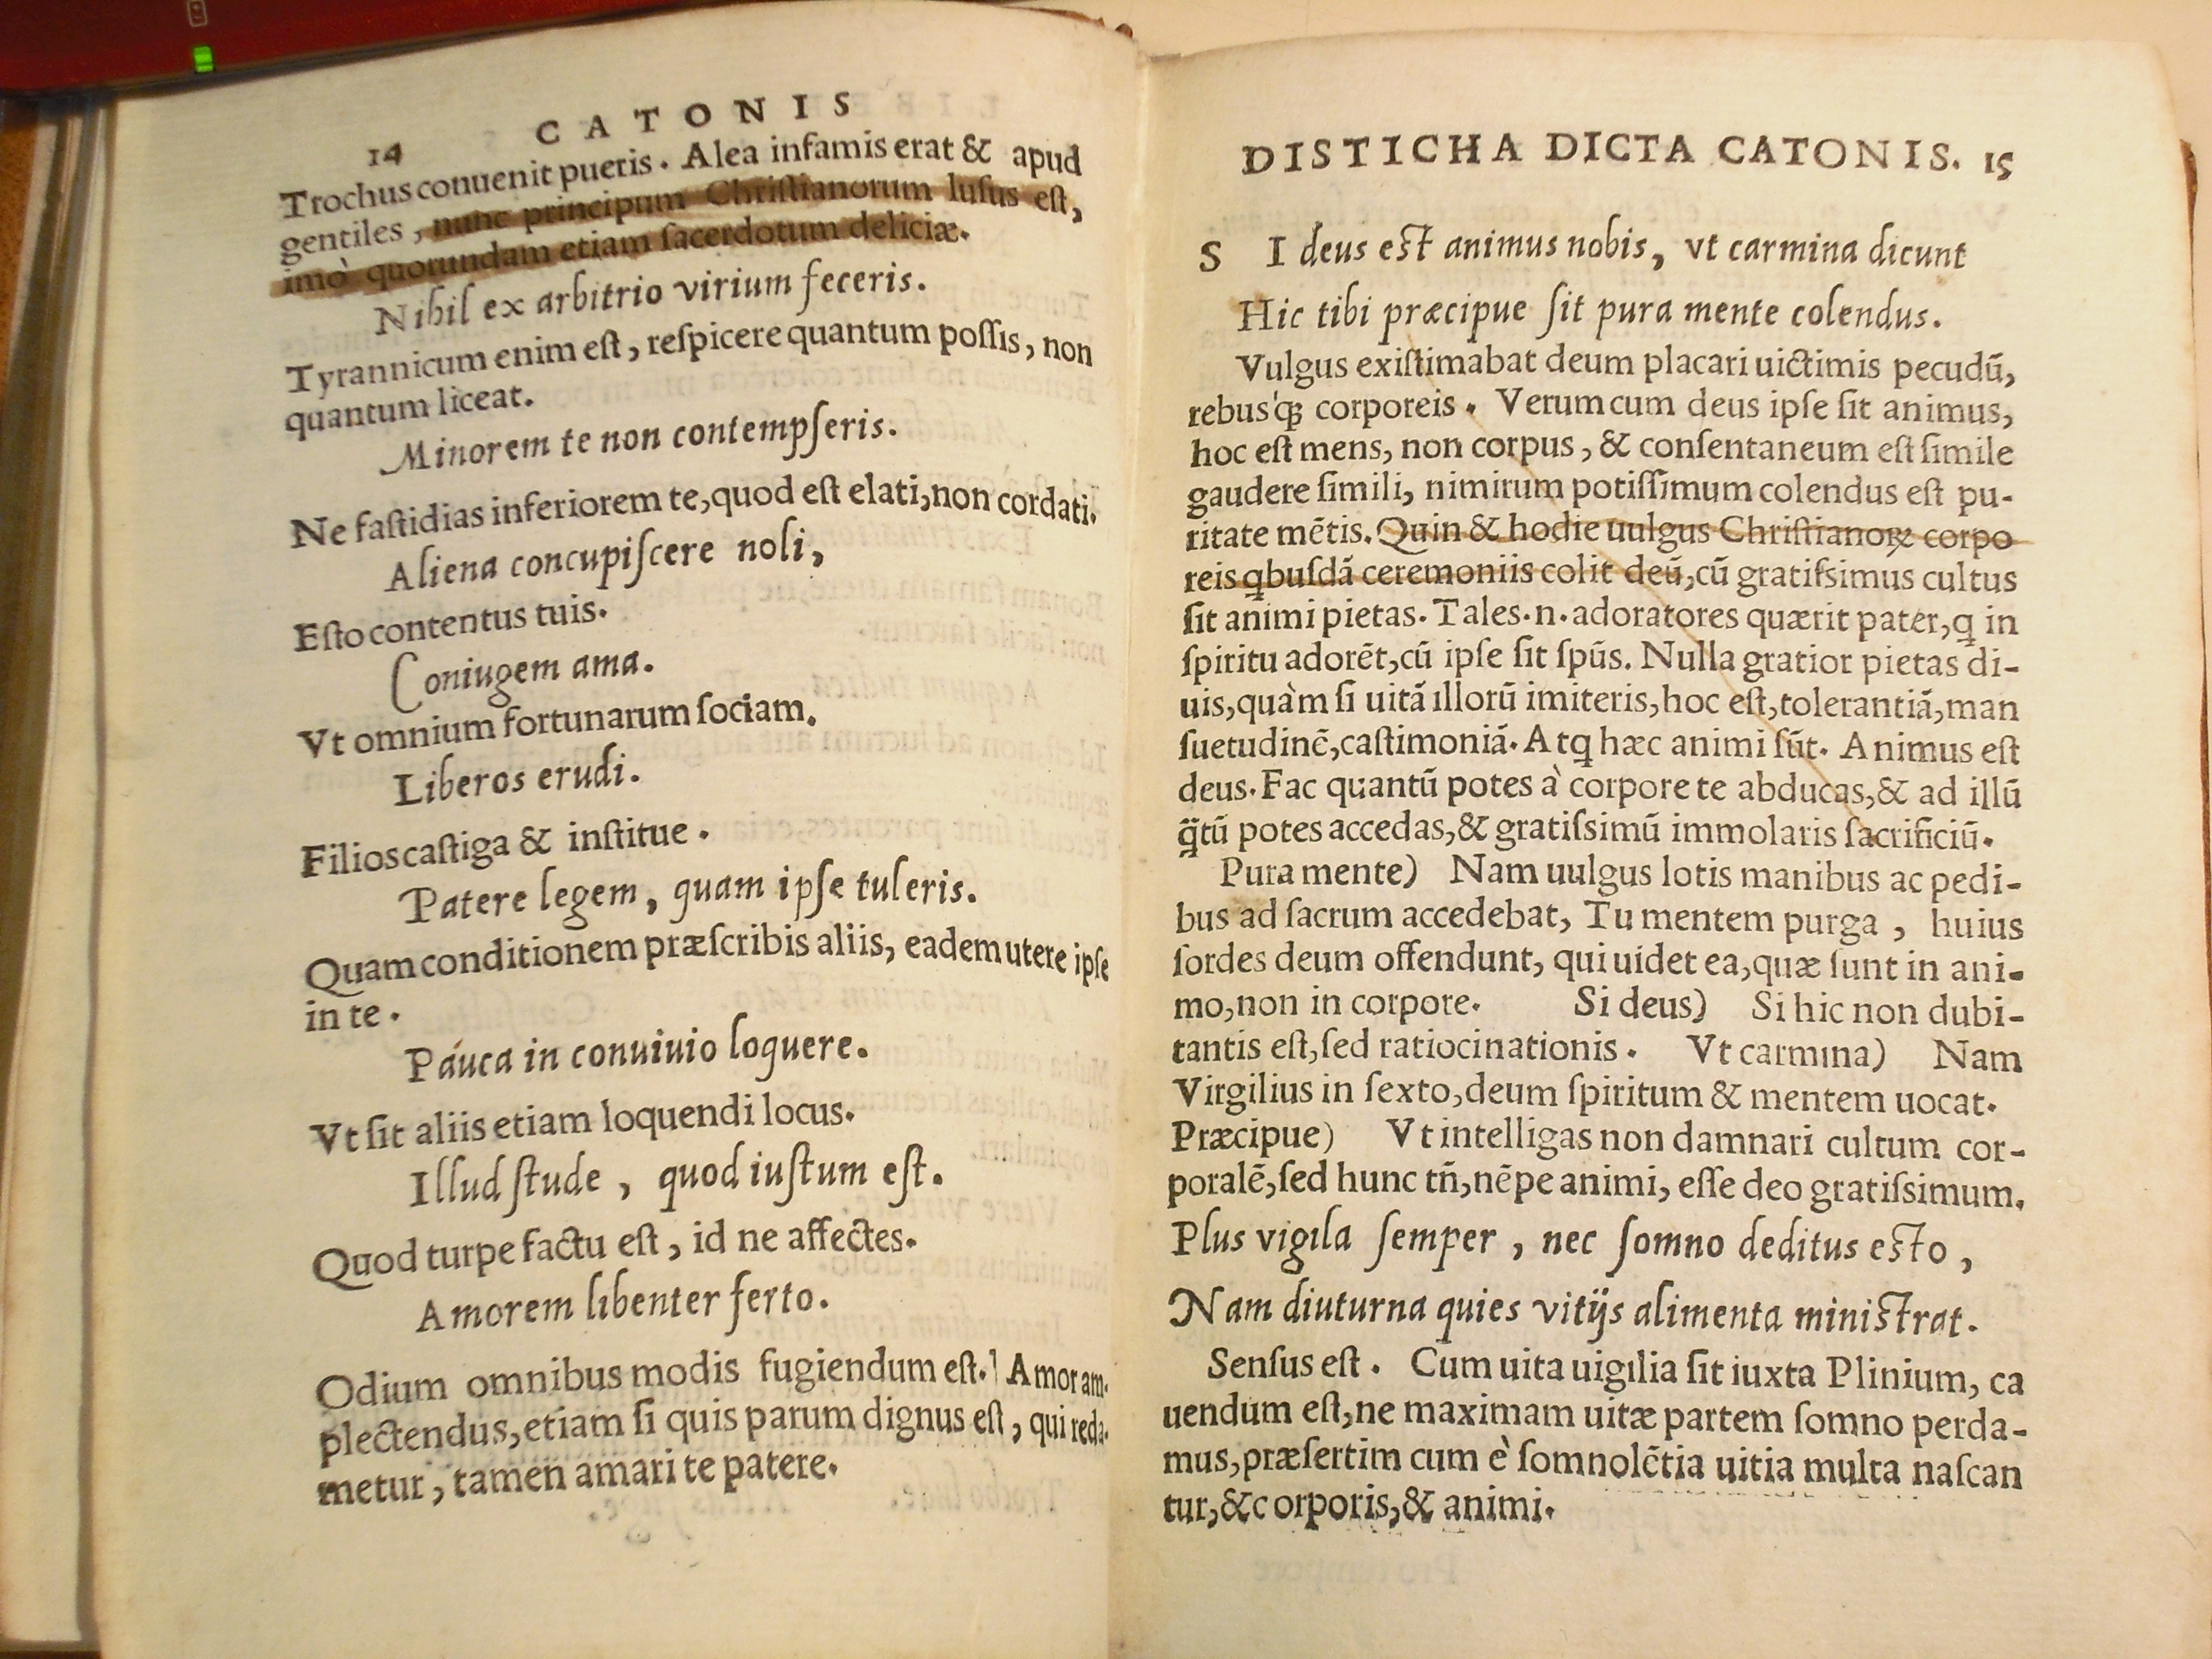 14 CATONIS
Trochus conuenit pueris. Alea infamis erat & apud
gentiles, nunc principum Chriſtianorum luſus eſt,
imò quorundam etiam ſacerdotum deliciæ.
Nihil ex arbitrio virium feceris.
Tyrannicum enim eſt, reſpicere quantum poſſis, non
quantum liceat.
Minorem te non contempſeris.
Ne faſtidias inferiorem te, quod eſt elati, non cordati.
Aliena concupiſcere noli,
Eſto contentus tuis.
Coniugem ama.
Vt omnium fortunarum ſociam.
Liberos erudi.
Filios caſtiga & inſtitue.
Patere legem, quam ipſe tuleris.
Quam conditionem præſcribis aliis, eadem utere ipſe
in te.
Pauca in conuiuio loquere.
Vt ſit aliis etiam loquendi locus.
Illud ſtude, quod iuſtum eſt.
Quod turpe factu eſt, id ne affectes.
Amorem libenter ferto.
Odium omnibus modis fugiendum eſt. Amor am-
plectendus, etiam ſi quis parum dignus eſt, qui reda-
metur, tamen amari te patere.
DISTICHA DICTA CATONIS. 15
SI deus eſt animus nobis, vt carmina dicunt
Hic tibi præcipue ſit pura mente colendus.
Vulgus exiſtimabat deum placari uictimis pecudū,
rebusꝗ corporeis. Verum cum deus ipſe ſit animus,
hoc eſt mens, non corpus, & conſentaneum eſt ſimile
gaudere ſimili, nimirum potiſſimum colendus eſt pu-
ritate mētis. Quin & hodie uulgus Chriſtianoꝝ corpo
reis ꝗbuſdā ceremoniis colit deū, cū gratiſsimus cultus
ſit animi pietas. Tales.n.adoratores quærit pater, ꝗ in
ſpiritu adorēt, cū ipſe ſit ſpūs. Nulla gratior pietas di-
uis, quàm ſi uitā illorū imiteris, hoc eſt, tolerantiā, man
ſuetudinē, caſtimoniā. Atꝗ hæc animi ſūt. Animus eſt
deus. Fac quantū potes à corpore te abducas, & ad illū
q̈tū potes accedas, & gratiſsimū immolaris ſacrificiū.
Pura mente) Nam uulgus lotis manibus ac pedi-
bus ad ſacrum accedebat, Tu mentem purga, huius
ſordes deum offendunt, qui uidet ea, quæ ſunt in ani-
mo, non in corpore. Si deus) Si hic non dubi-
tantis eſt, ſed ratiocinationis. Vt carmina) Nam
Virgilius in ſexto, deum ſpiritum & mentem uocat.
Præcipue) Vt intelligas non damnari cultum cor-
poralē, ſed hunc tn̄, nēpe animi, eſſe deo gratiſsimum.
Plus vigila ſemper, nec ſomno deditus eſto,
Nam diuturna quies vitijs alimenta miniſtrat.
Senſus eſt. Cum uita uigilia ſit iuxta Plinium, ca
uendum eſt, ne maximam uitæ partem ſomno perda-
mus, præſertim cum è ſomnolētia uitia multa naſcan
tur, &c orporis, & animi.